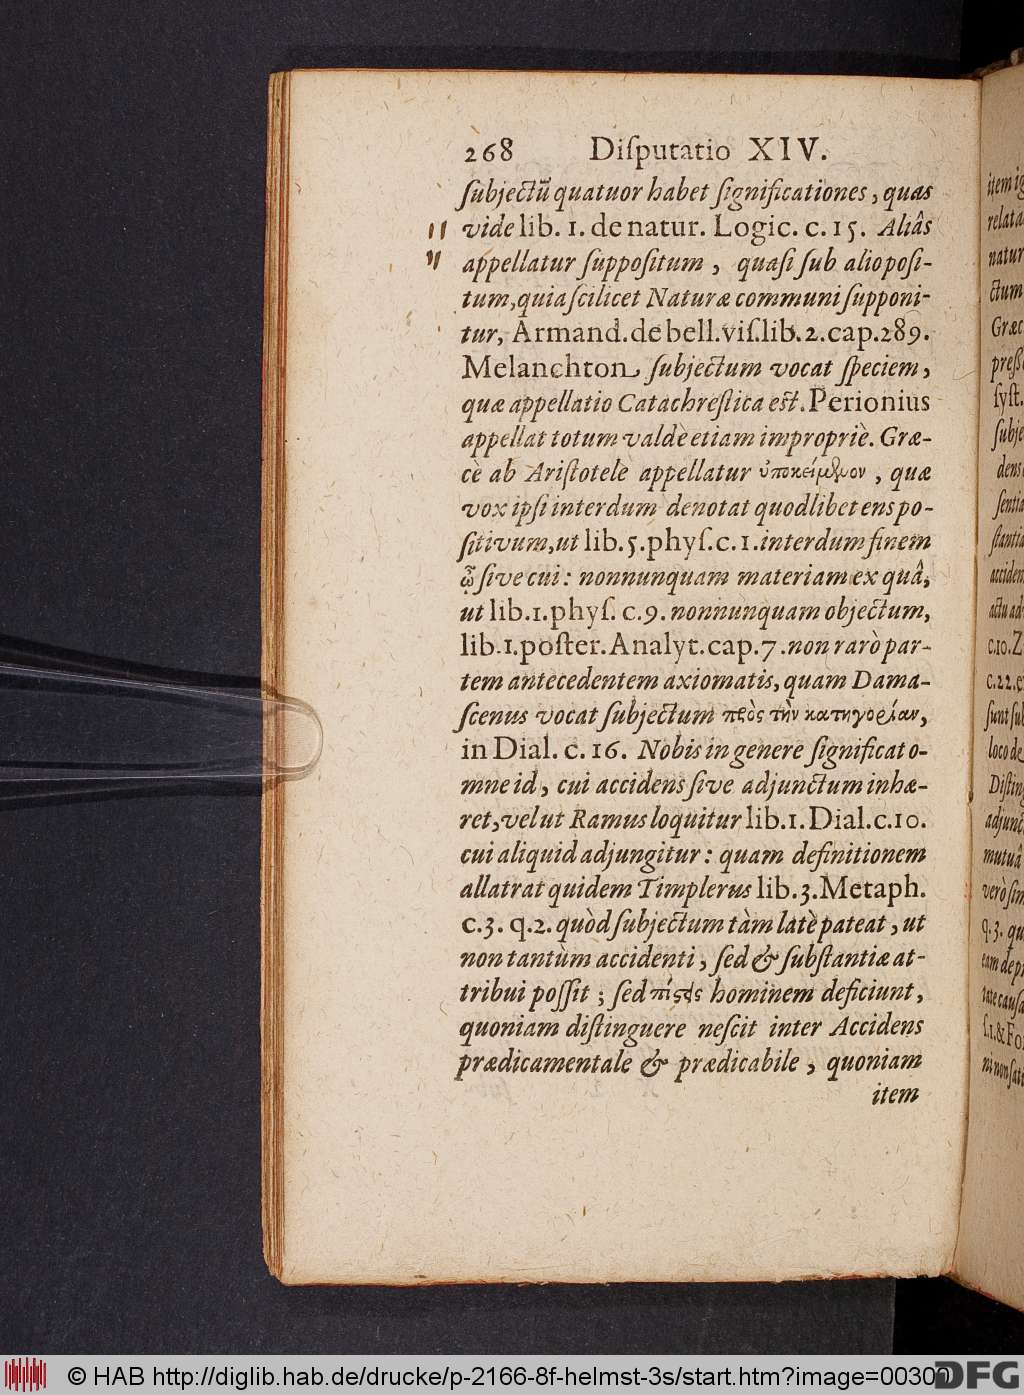 268 Diſputatio XIV.
ſubjectũ quatuor habet ſignificationes, quas
vide lib. 1. de natur. Logic. c. 15. Aliâs
appellatur ſuppoſitum, quaſi ſub alio poſi-
tum, quia ſcilicet Naturæ communi ſupponi-
tur, Armand. de bell. viſ. lib. 2. cap. 289.
Melanchton ſubjectum vocat ſpeciem,
quæ appellatio Catachreſtica eſt. Perionius
appellat totum valdè etiam impropriè. Græ-
cè ab Ariſtotele appellatur ὑποκείμενον, quæ
vox ipſi interdum denotat quodlibet ens po-
ſitivum, ut lib. 5. phyſ. c. 1. interdum finem
ᾧ ſive cui: nonnunquam materiam ex quâ,
ut lib. 1. phyſ. c. 9. nonnunquam objectum,
lib. 1. poſter. Analyt. cap. 7. non rarò par-
tem antecedentem axiomatis, quam Dama-
ſcenus vocat ſubjectum πρὸς τὴν κατηγορίαν,
in Dial. c. 16. Nobis in genere ſignificat o-
mne id, cui accidens ſive adjunctum inhæ-
ret, vel ut Ramus loquitur lib. 1. Dial. c. 10.
cui aliquid adjungitur: quam definitionem
allatrat quidem Timplerus lib. 3. Metaph.
c. 3. q. 2. quòd ſubjectum tàm latè pateat, ut
non tantùm accidenti, ſed & ſubſtantiæ at-
tribui poſſit; ſed πίςεις hominem deficiunt,
quoniam diſtinguere neſcit inter Accidens
prædicamentale & prædicabile, quoniam
item
item ig
relata
natur
ctum
Græc
preſſ
ſyſt.
ſubje
dens
ſentia
ſtantia
acciden
actu ad
c. 10. Z
c. 22. e
ſunt ſub
loco de
Diſting
adjunc
mutuâ
verò ſim
q. 3. qu
eam de p
tate cauſa
ſ. 1. & Fo
ni non ſati
© HAB http://diglib.hab.de/drucke/p-2166-8f-helmst-3s/start.htm?image=00300
DFG